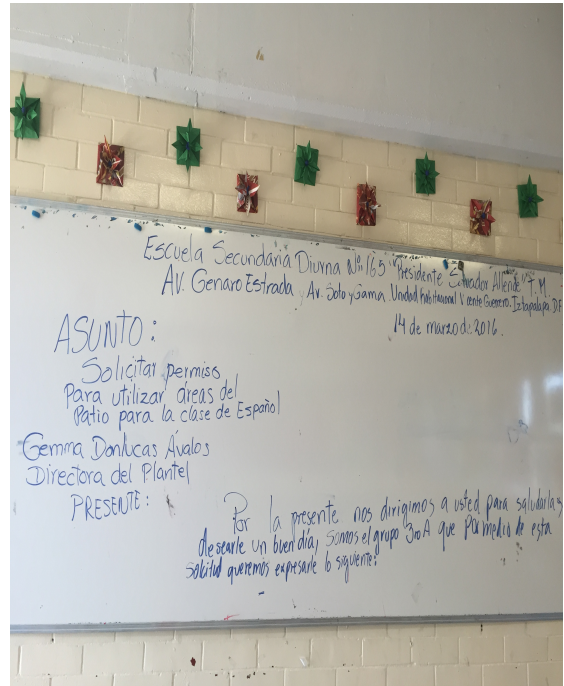 Escuela Secundaria Diurna Nº 165 "Presidente Salvador Allende" T. M.
Av. Genaro Estrada y Av. Soto y Gama. Unidad habitacional Vicente Guerrero. Iztapalapa D.F
14 de marzo de 2016.
ASUNTO:
Solicitar permiso
Para utilizar áreas del
Patio para la clase de Español
Gemma Donlucas Ávalos
Directora del Plantel
PRESENTE:
Por la presente nos dirigimos a usted para saludarla y
desearle un buen día, somos el grupo 3ro A que por medio de esta
solicitud queremos expresarle lo siguiente: